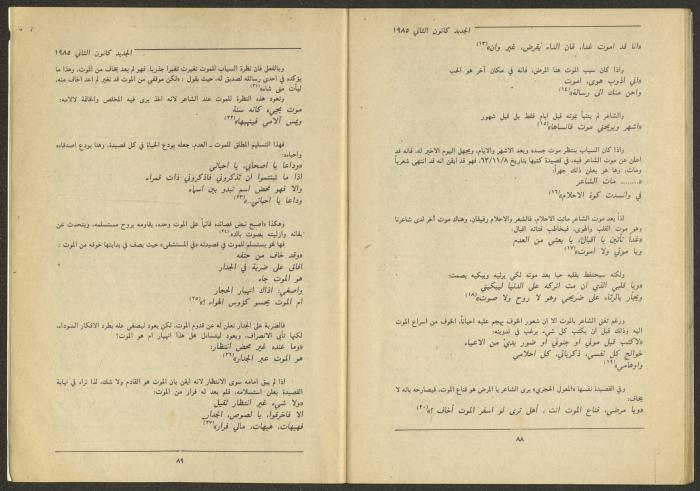 الجديد كانون الثاني ١٩٨٥
«انا قد اموت غدا، فان الداء يقرض، غير وان»(١٣)
واذا كان سبب الموت هنا المرض، فانه في مكان آخر هو الحب
«اني اذوب هوى، اموت
واحن منك الى رسالة»(١٤)
والشاعر لم يتنبأ بموته قبل ايام فقط بل قبل شهور
«اشهر ويريحني موت فأنساها»(١٥)
واذا كان السياب ينتظر موت جسده وبعد الاشهر والايام، ويجهل اليوم الاخير له، فانه قد
اعلن عن موت الشاعر فيه، في قصيدة كتبها بتاريخ ٦٣/١١/٨، فهو قد ايقن انه قد انتهى شعرياً
ومات، وها هو يعلن ذلك جهراً:
«........ مات الشاعر
في وانسدت كوة الاحلام»(١٦)
اذاً بعد موت الشاعر ماتت الاحلام، فالشعر والاحلام رفيقان، وهناك موت آخر لدى شاعرنا
وهو موت القلب والهوى، فيخاطب فتاته اقبال:
«غدا تأتين يا اقبال، يا بعثي من العدم
ويا موتي ولا اموت»(١٧)
ولكنه سيحتفظ بقلبه حيا بعد موته لكي يرثيه ويبكيه بصمت:
«ويا قلبي الذي ان مت اتركه على الدنيا ليبكيني
ويجأر بالرثاء على ضريحي وهو لا روح ولا صوت»(١٨)
ورغم تغني الشاعر بالموت الا ان شعور الخوف يهجم عليه احياناً، الخوف من اسراع الموت
اليه وذلك قبل ان يكتب كل شيء يرغب في تدوينه:
«لاكتب قبل موتي او جنوني أو ضور يدي من الاعياء
خوالج كل نفسي، ذكرياتي، كل احلامي
واوهامي»(١٩)
وفي القصيدة نفسها «المعول الحجري» يرى الشاعر بالمرض هو قناع الموت، فيصارحه بانه لا
يخاف:
«ويا مرضي، قناع الموت انت ، أهل ترى لو اسفر الموت أخاف ؟»(٢٠)
٨٨
الجديد كانون الثاني ١٩٨٥
وبالفعل فان نظرة السياب للموت تغيرت تغيرا جذريا، فهو لم يعد يخاف من الموت، وهذا ما
يؤكده في احدى رسائله لصديق له، حيث يقول : «لكن موقفي من الموت قد تغير لم اعد اخاف منه،
ليأت متى شاء»(٢١)
وتعود هذه النظرة للموت عند الشاعر لانه اخذ يرى فيه المخلص والخالقة لآلامه:
موت يجيء كانه سنة
ويمس آلامي فينهيها»(٢٢)
فهذا التسليم المطلق للموت ـ العدم، جعله يودع الحياة في كل قصيدة، وهنا يودع اصدقاءه
واحباءه:
«وداعا يا اصحابي، يا احبائي
اذا ما شئتموا ان تذكروني فاذكروني ذات قمراء
والا فهو محض اسم تبدو بين اسماء
وداعا يا احبائي..»(٢٣)
وهكذا «اصبح نبض قصائده قائماً على الموت وحده، يقاومه بروح مستسلمه، ويتحدث عن
بقائه وازليته بصوت بالد»(٢٤)
فها هو يستسلم للموت في قصيدته «في المستشفى» حيث يصف في بدايتها خوفه من الموت :
«وقد خاف من حتفه
افاق على ضربة في الجدار
هو الموت جاء
واصغي: اذاك انهيار الحجار
ام الموت يحسو كؤوس الهواء ؟»(٢٥)
فالضربة على الجدار تعلن له عن قدوم الموت، لكن يعود ليصغي عله يطرد الافكار السوداء،
لكنها تأبى الانصراف، ويعود ليتساءل هل هذا انهيار ام هو الموت!
«وما عنده غير محض انتظار:
هو الموت عبر الجدار»(٢٦)
اذا لم يبق امامه سوى الانتظار لانه ايقن بان الموت هو القادم ولا شك، لذا نراه في نهاية
القصيدة يعلن استسلامه، فلم يعد له فرار من الموت:
«ولا شيء غير انتظار ثقيل
الا فاخرقوا، يا لصوص، الجدار
فهيهات، هيهات، مالي فرار»(٢٧)
٨٩